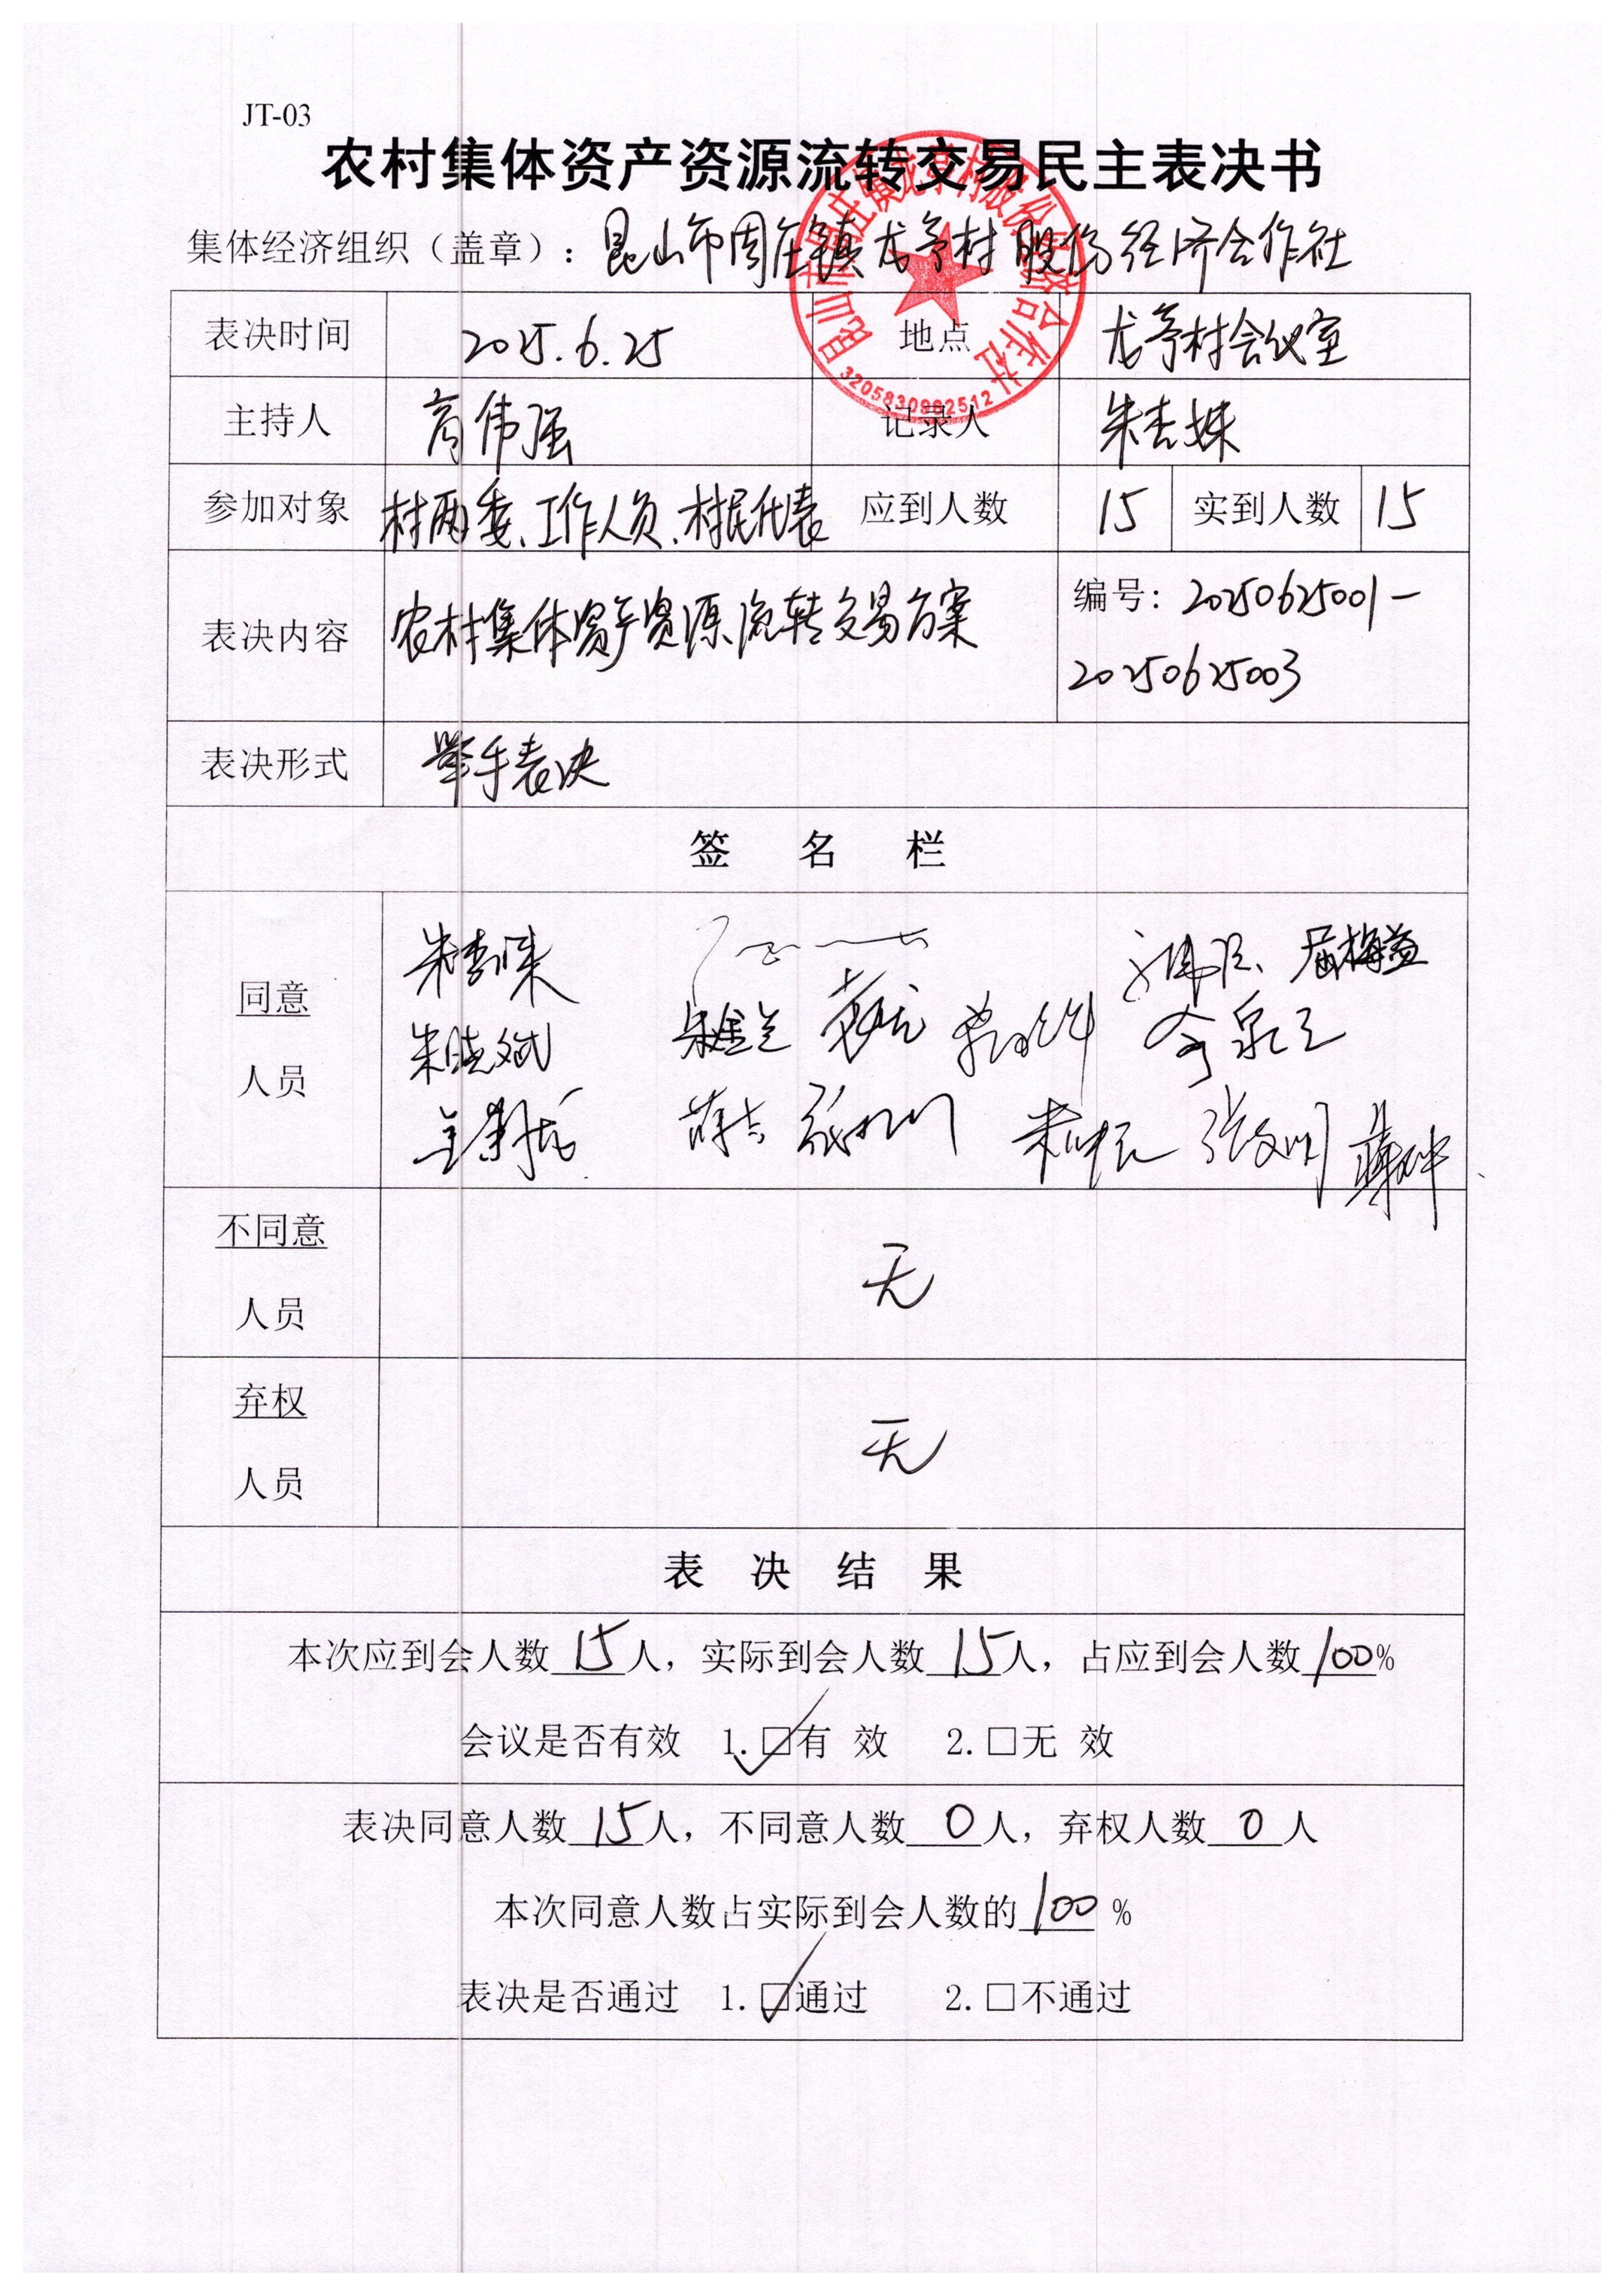 JT-03
农村集体资产资源流转交易民主表决书
集体经济组织（盖章）：昆山市周庄镇龙亭村股份经济合作社
3205830962512
表决时间 2025.6.25 地点 龙亭村会议室
主持人 伟强 记录人 朱杏妹
参加对象 村两委、工作人员、村民代表 应到人数 15 实到人数 15
表决内容 农村集体资产资源流转交易方案 编号：20250625001—
20250625003
表决形式 举手表决
签 名 栏
同意
人员
朱杏妹
朱晓斌 朱金兰
张文明
不同意
人员
无
弃权
人员
无
表 决 结 果
本次应到会人数15人，实际到会人数15人，占应到会人数100%
会议是否有效 1.☑有 效 2.□无 效
表决同意人数15人，不同意人数0人，弃权人数0人
本次同意人数占实际到会人数的100%
表决是否通过 1.☑通过 2.□不通过